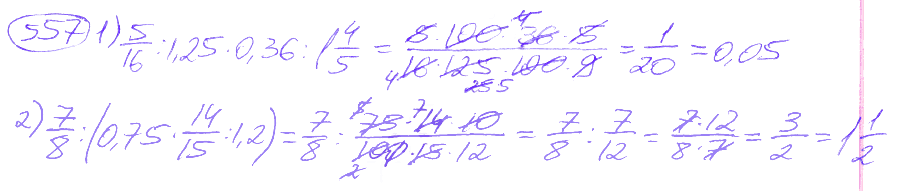 557 1) 5/16 : 1,25 · 0,36 : 1 4/5 = (5 · 100 · 36 · 5)/(16 · 125 · 100 · 9) = 1/20 = 0,05
2) 7/8 : (0,75 · 14/15 : 1,2) = 7/8 : (75 · 14 · 10)/(100 · 15 · 12) = 7/8 : 7/12 = (7 · 12)/(8 · 7) = 3/2 = 1 1/2